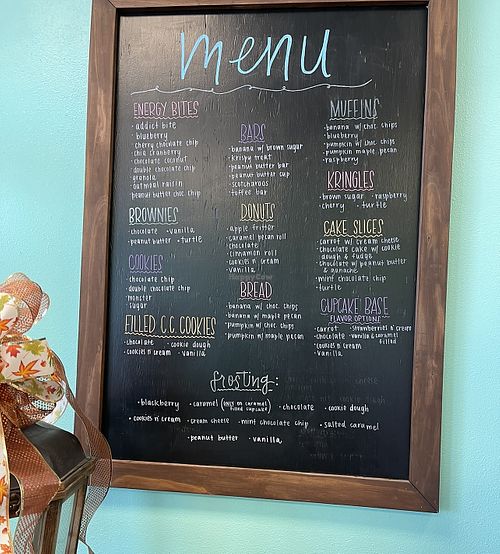 menu
ENERGY BITES
· addict bite
· blueberry
· cherry chocolate chip
· chia cranberry
· chocolate coconut
· double chocolate chip
· granola
· oatmeal raisin
· peanut butter choc chip
BROWNIES
· chocolate · vanilla
· peanut butter · turtle
COOKIES
· chocolate chip
· double chocolate chip
· monster
· sugar
FILLED C.C. COOKIES
· chocolate · cookie dough
· cookies n' cream · vanilla
BARS
· banana w/ brown sugar
· krispy treat
· peanut butter bar
· peanut butter cup
· scotcharoos
· toffee bar
DONUTS
· apple fritter
· caramel pecan roll
· chocolate
· cinnamon roll
· cookies n' cream
· vanilla
BREAD
· banana w/ choc chips
· banana w/ maple pecan
· pumpkin w/ choc chips
· pumpkin w/ maple pecan
MUFFINS
· banana w/ choc chips
· blueberry
· pumpkin w/ choc chips
· pumpkin maple pecan
· raspberry
KRINGLES
· brown sugar · raspberry
· cherry · turtle
CAKE SLICES
· carrot w/ cream cheese
· chocolate cake w/ cookie
dough & fudge
· chocolate w/ peanut butter
& ganache
· mint chocolate chip
· turtle
CUPCAKE BASE
FLAVOR OPTIONS
· carrot · strawberries n' cream
· chocolate · vanilla & caramel
filled
· cookies n' cream
· vanilla
frosting:
· blackberry · caramel (only on caramel
filled cupcake) · chocolate · cookie dough
· cookies n' cream · cream cheese · mint chocolate chip · salted caramel
· peanut butter · vanilla